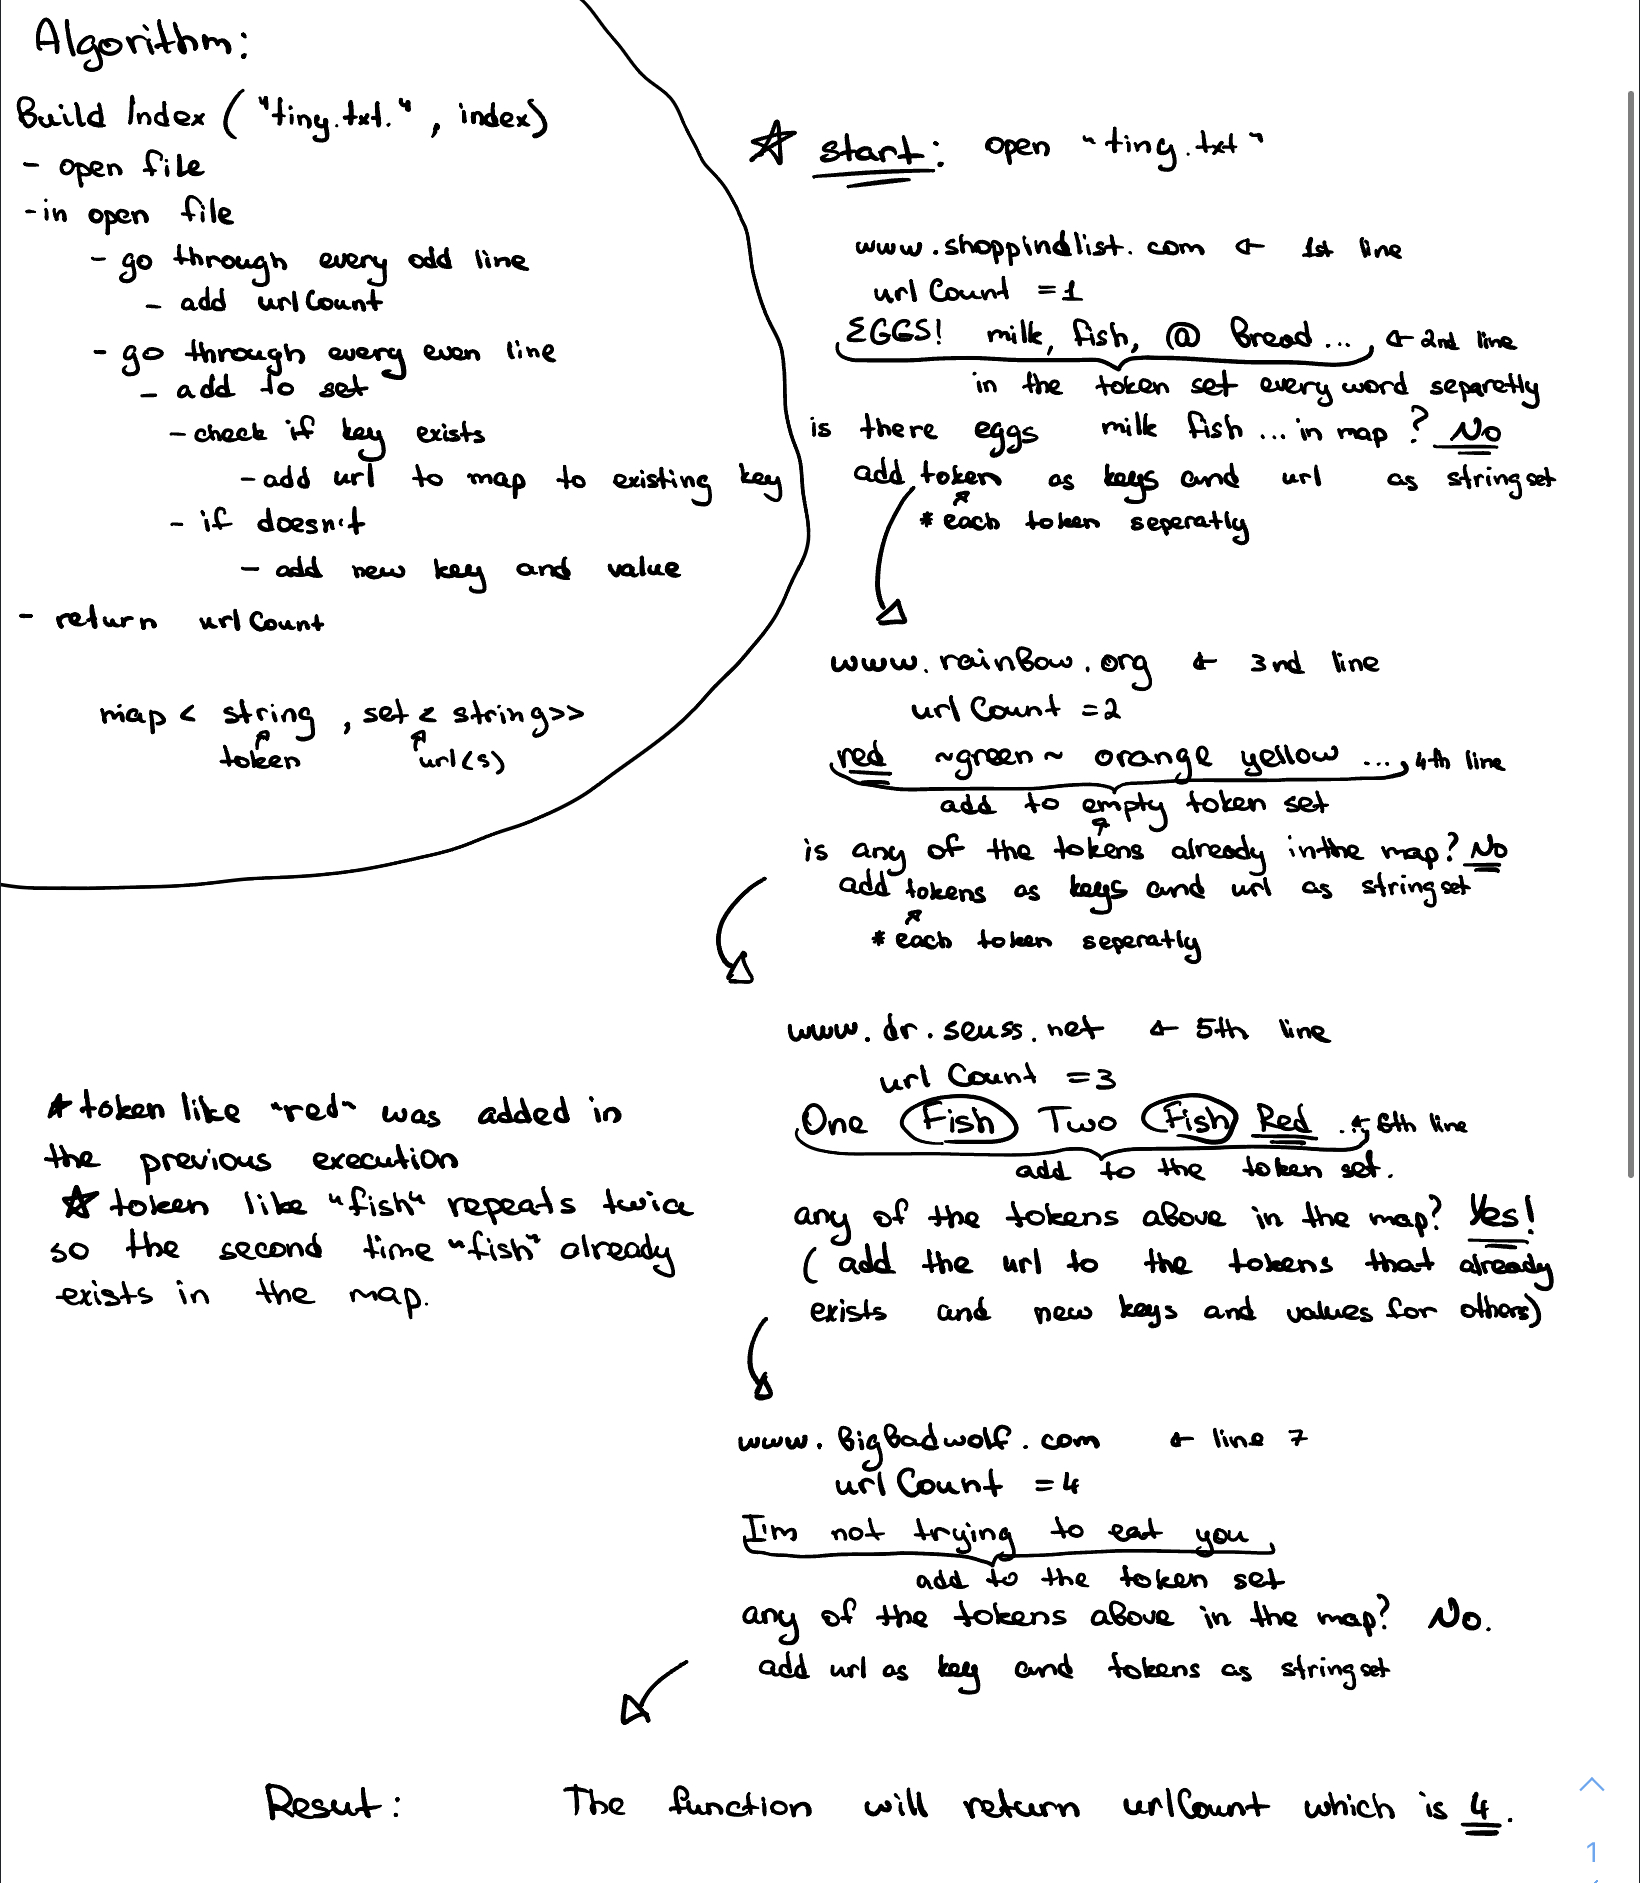 Algorithm:
Build Index ( "tiny.txt." , index)
- open file
- in open file
- go through every odd line
- add urlCount
- go through every even line
- add to set
- check if key exists
- add url to map to existing key
- if doesn't
- add new key and value
- return urlCount
map < string , set < string>>
token url(s)
☆ start: open "tiny.txt"
www.shoppindlist.com ← 1st line
urlCount = 1
EGGS! milk, fish, @ Bread ... ← 2nd line
in the token set every word separetly
is there eggs milk fish ... in map ? No
add token as keys and url as string set
* each token seperatly
www.rainbow.org ← 3nd line
urlCount = 2
red ~green~ orange yellow ... 4th line
add to empty token set
is any of the tokens already in the map? No
add tokens as keys and url as string set
* each token seperatly
www.dr.seuss.net ← 5th line
urlCount = 3
One Fish Two Fish Red ... ← 6th line
add to the token set.
any of the tokens above in the map? Yes!
( add the url to the tokens that already
exists and new keys and values for others)
☆ token like "red" was added in
the previous execution
☆ token like "fish" repeats twice
so the second time "fish" already
exists in the map.
www.BigBadwolf.com ← line 7
urlCount = 4
I'm not trying to eat you
add to the token set
any of the tokens above in the map? No.
add url as key and tokens as string set
Resut: The function will return urlCount which is 4.
1